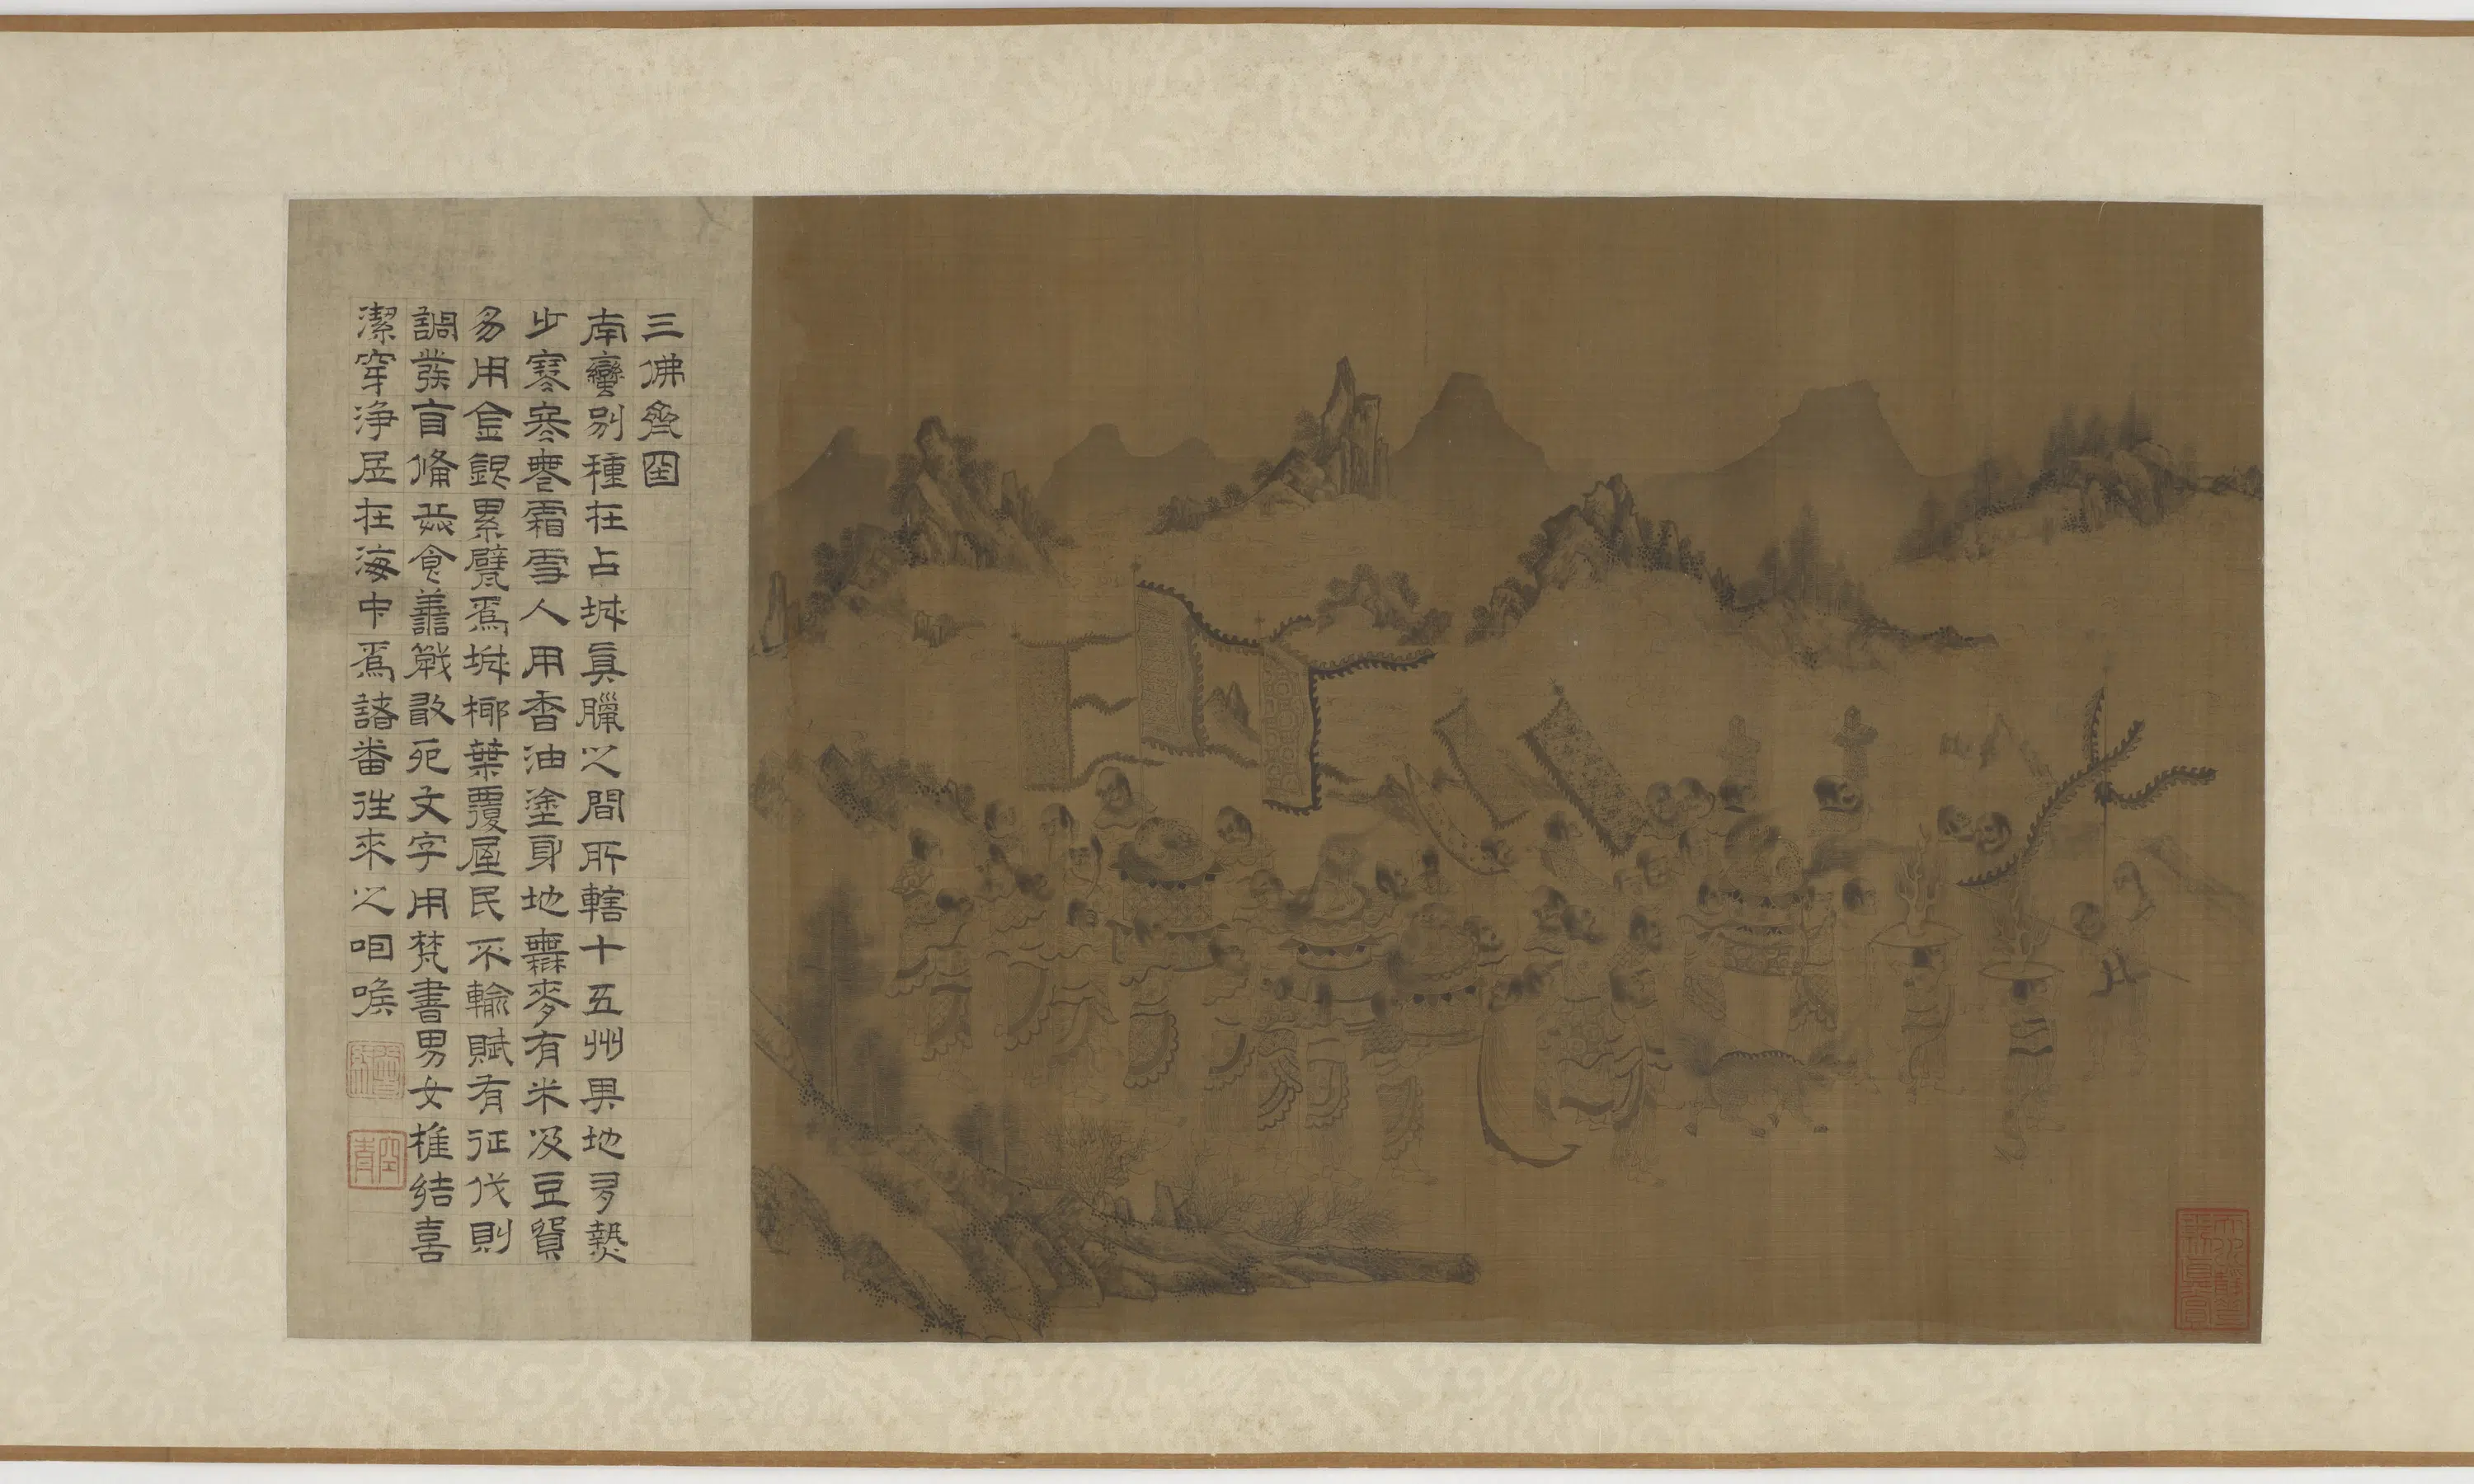 三佛齊囯
南蠻別種在占城眞臘之間所轄十五州其地多熱
少寒寒無霜雪人用香油塗身地無麥有米及豆貿
易用金銀累甓爲城椰葉覆屋民不輸賦有征伐則
調發自備兵食善戰敢死文字用梵書男女椎結喜
潔穿淨居在海中爲諸番往來之咽喉
空青